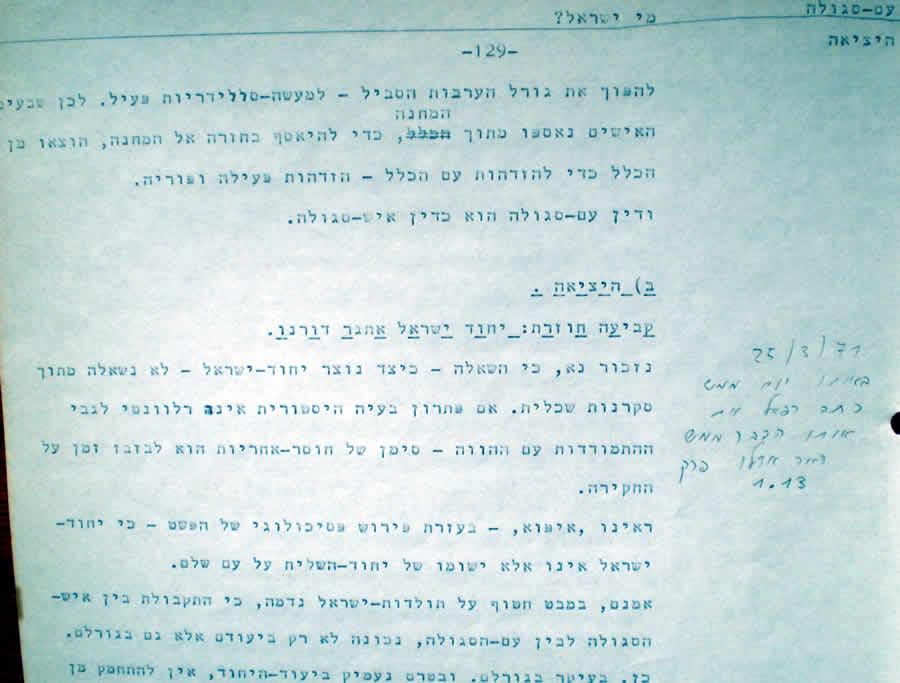 עם-סגולה
מי ישראל?
היציאה
-129-
להפוך את גורל הערבות הסביל - למעשה-סולידריות פעיל. לכן שבעים
המחנה
האישים נאספו מתוך הכלל, כדי להיאסף בחזרה אל המחנה, הוצאו מן
הכלל כדי להזדהות עם הכלל - הזדהות פעילה ופוריה.
ודין עם-סגולה הוא כדין איש-סגולה.
ב) היציאה .
קביעה חוזרת: יחוד ישראל אתגר דורנו.
נזכור נא, כי השאלה - כיצד נוצר יחוד-ישראל - לא נשאלה מתוך
סקרנות שכלית. אם פתרון בעיה היסטורית אינה רלוונטי לגבי
ההתמודדות עם ההווה - סימן של חוסר-אחריות הוא לבזבז זמן על
החקירה.
ראינו ,איפוא, - בעזרת פירוש פסיכולוגי של הפשט - כי יחוד-
ישראל אינו אלא ישומו של יחוד-השליח על עם שלם.
אמנם, במבט חטוף על תולדות-ישראל נדמה, כי התקבולת בין איש-
הסגולה לבין עם-הסגולה, נכונה לא רק ביעודם אלא גם בגורלם.
כן. בעיקר בגורלם. ובטרם נעמיק ביעוד-היחוד, אין להתחמק מן
25/3/71
באותו יום ממש
כתב רפאל את
אותו הדבר ממש
פרק
1.13